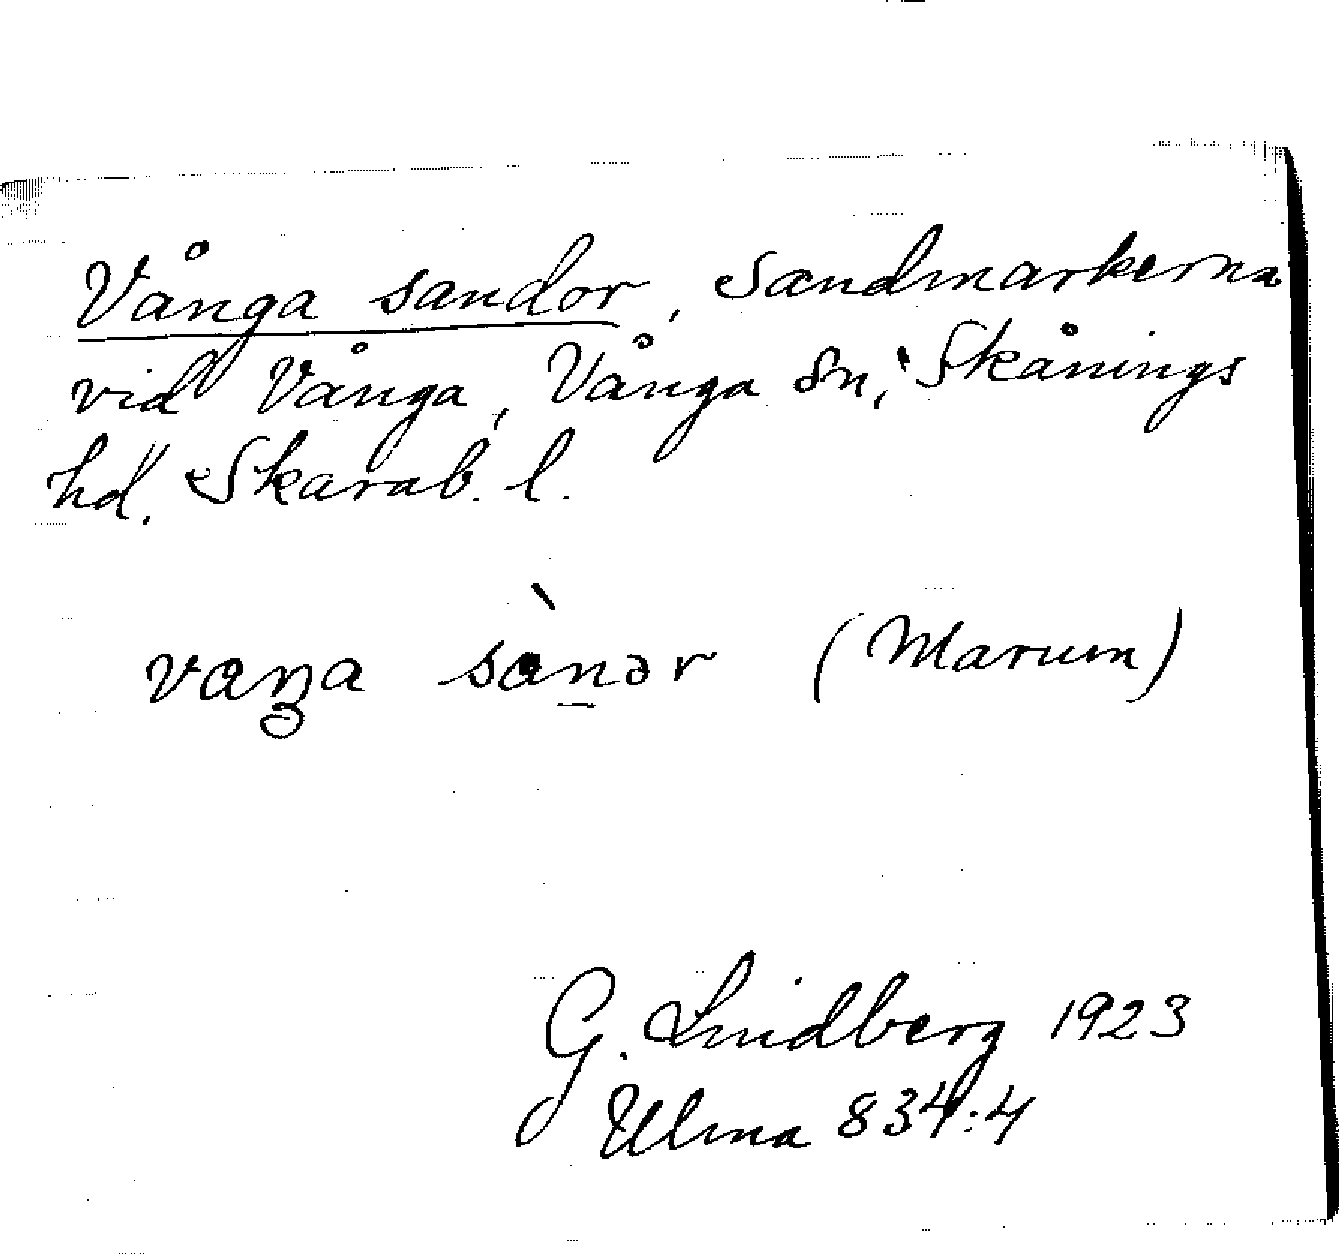 Vånga sandor, Sandmarkerna
vid Vånga, Vånga sn, Skånings
hd. Skarab. l.
vaŋa sànər (Marum)
G. Lindberg 1923
Ulma 834:4